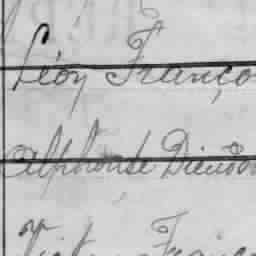 Léon Franço
Alphonse Dieudon
Victor Franç